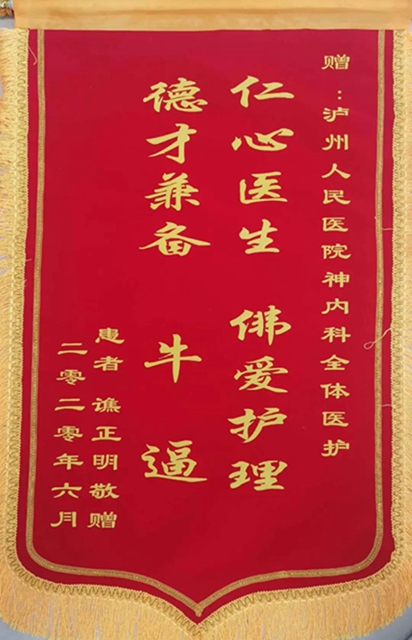 赠：泸州人民医院神内科全体医护
仁心医生 佛爱护理
德才兼备 牛逼
患者 谯正明敬赠
二零二零年六月